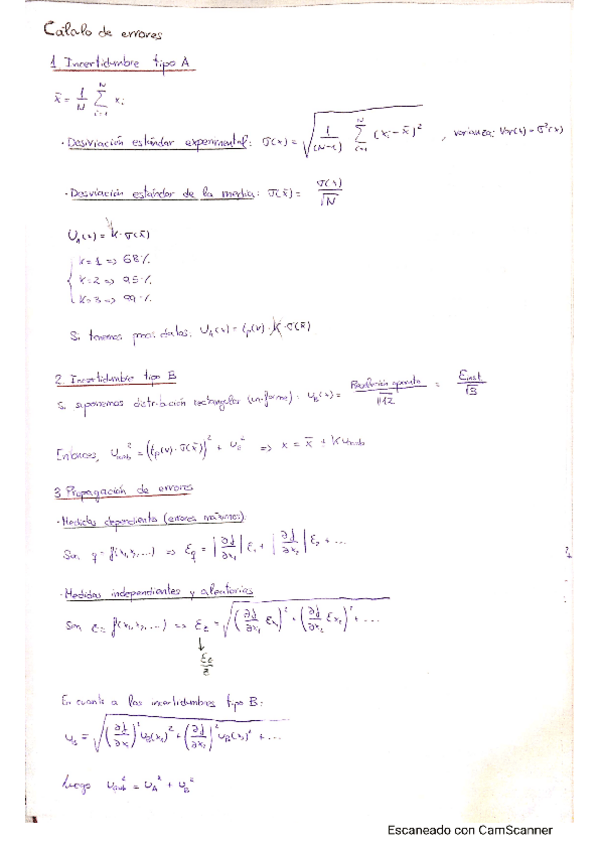 Cálculo de errores
1 Incertidumbre tipo A
x̄ = 1/N Σ_{i=1}^{N} x_i
· Desviación estándar experimental: σ(x) = √(1/(N-1) Σ_{i=1}^{N} (x_i - x̄)²) , varianza: Var(x) = σ²(x)
· Desviación estándar de la media: σ(x̄) = σ(x)/√N
U_A(x) = k·σ(x̄)
k=1 => 68%
k=2 => 95%
k=3 => 99%
Si tenemos pocos datos: U_A(x) = t_p(v)·k·σ(x̄)
2. Incertidumbre tipo B
Si suponemos distribución rectangular (uniforme): u_B(x) = /√12 = E_inst/√3
Entonces, u_comb² = (t_p(v)·σ(x̄))² + u_B² => x = x̄ ± k u_comb
3 Propagación de errores
· Medidas dependientes (errores máximos)
Sea q = f(x_1, x_2, ...) => ε_q = |∂f/∂x_1| ε_1 + |∂f/∂x_2| ε_2 + ...
· Medidas independientes y aleatorias
Sea = f(x_1, x_2, ...) => ε_z = √((∂f/∂x_1 ε_x1)² + (∂f/∂x_2 ε_x2)² + ...
↓
En cuanto a las incertidumbres tipo B:
u_B = √((∂f/∂x_1)² u_B(x_1)² + (∂f/∂x_2)² u_B(x_2)² + ...
Luego u_comb² = u_A² + u_B²
Escaneado con CamScanner